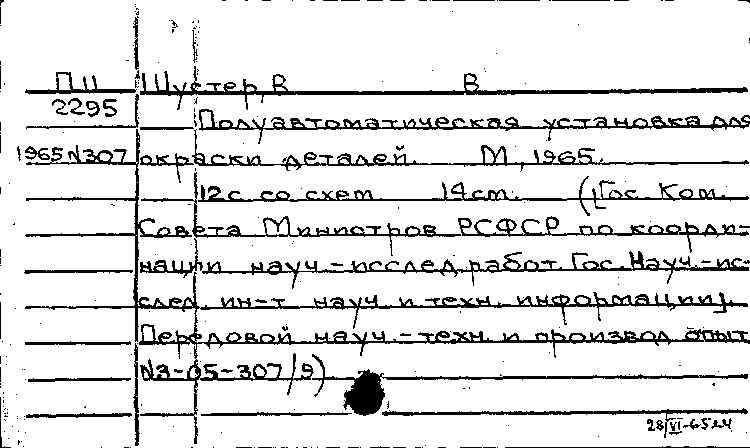 П 11 Шустер, В В
2295 Полуавтоматическая установка для
1965 N307 окраски деталей. М, 1965.
12 с со схем 14 см. ([Гос. Ком.
Совета Министров РСФСР по коорди-
нации науч.-исслед работ Гос. Науч.-ис-
след. ин-т науч. и техн. информации].
Передовой науч.-техн. и производ опыт
N3-05-307/9)
28/VI-65